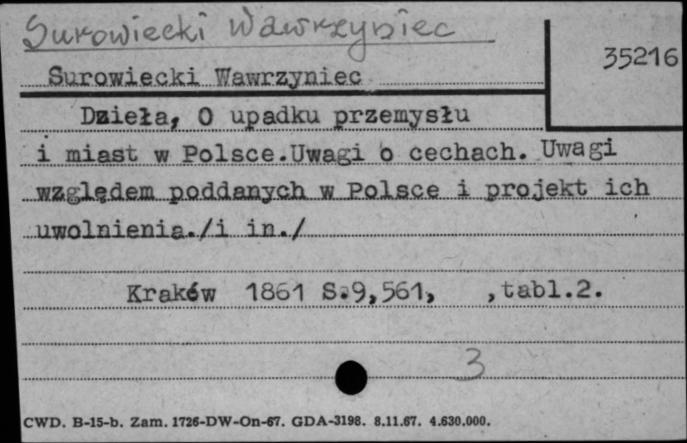 Surowiecki Wawrzyniec
35216
Surowiecki Wawrzyniec
Dzieła, O upadku przemysłu
i miast w Polsce.Uwagi o cechach. Uwagi
względem poddanych w Polsce i projekt ich
uwolnienia./i in./
Kraków 1861 S.9,561, ,tabl.2.
3
CWD. B-15-b. Zam. 1726-DW-On-67. GDA-3198. 8.11.67. 4.630.000.